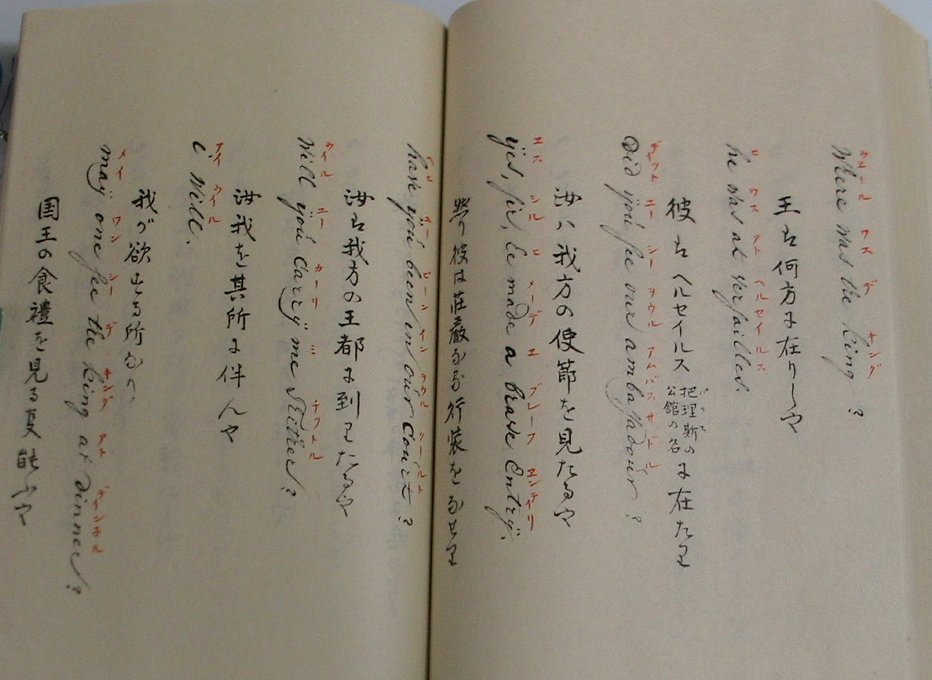 ウェール ワス デ キング
Where was the king ?
王は何方に在りしや
ヒ ワス アト ヘルセイルス
he was at verſailles.
彼はヘルセイルス 把理斯の公館の名 に在たり
ディット ユー シー ヲウル アムバスサドル
Did you ſee our ambaſſadour ?
汝ハ我方の使節を見たるや
エス シル ヒ メーデ エ ブレーフ エンテイリ
yes, ſir, he made a brave Entry.
然り彼は荘厳なる行装をなせり
ユー ビーン イン ヲウル コールト
have you been in our Court ?
汝は我方の王都に到りたるや
ウイル ユー カーリ ミ テフトル
Will you Carry me thither ?
汝我を其所に伴んや
アイ ウイル
i Will.
我が欲する所なり
メイ ワン シー デ キング アト ディンネル
may one ſee the king at dinner ?
国王の食禮を見る事能ふや